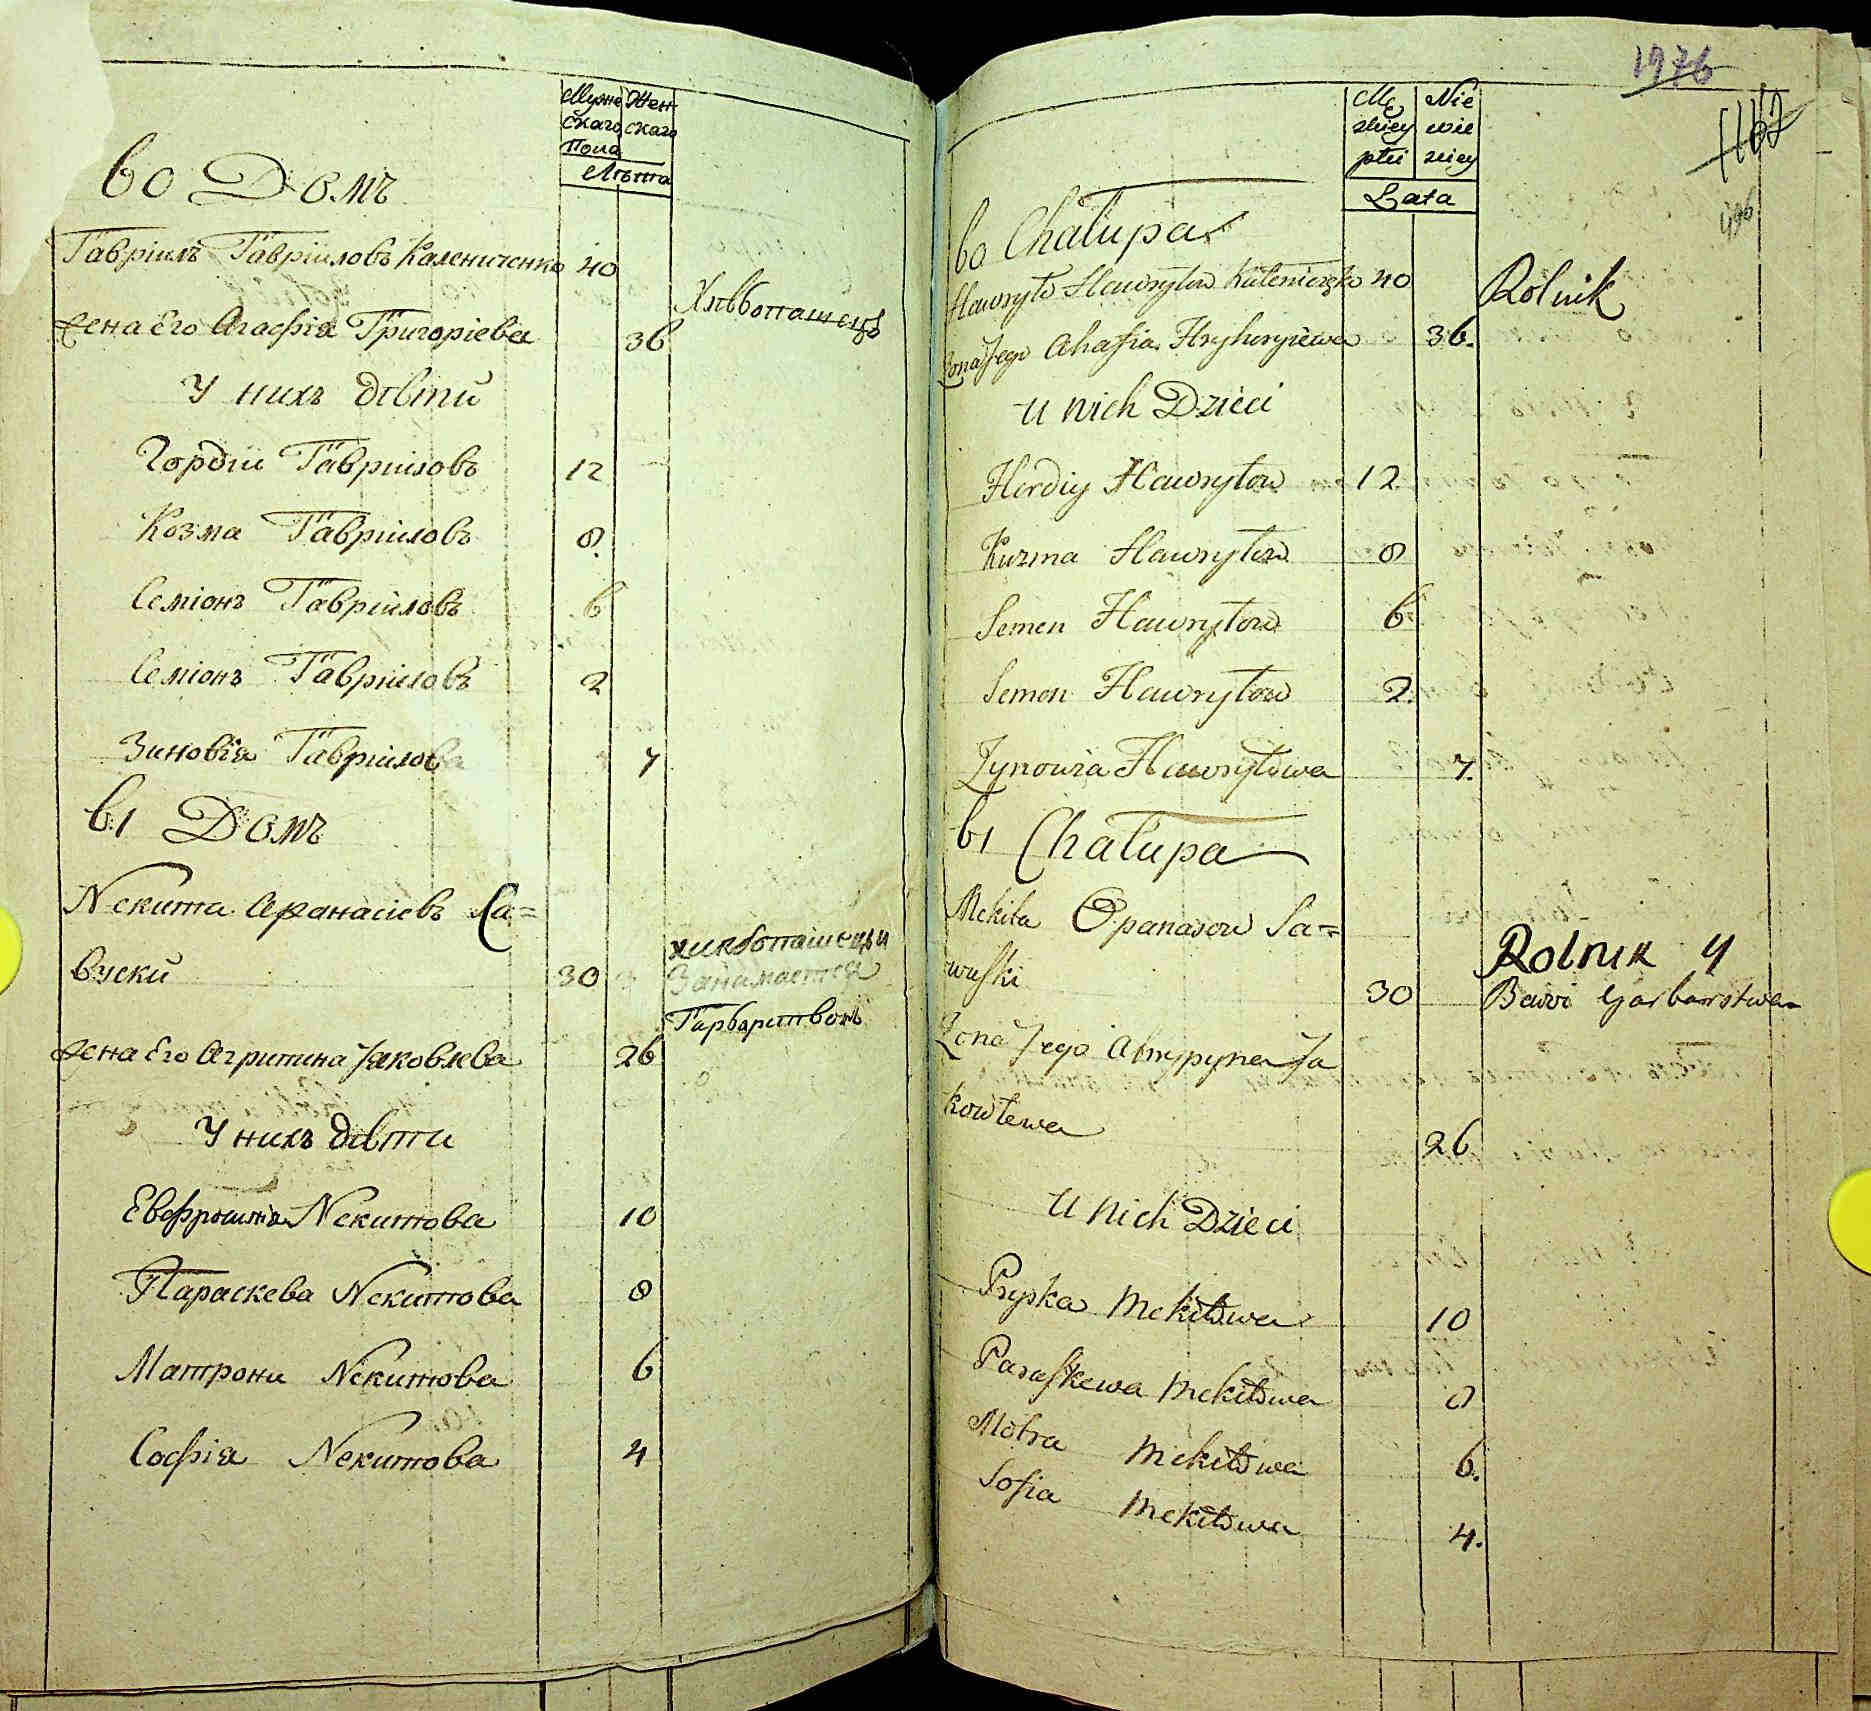 Мужескаго Женскаго
Пола
Лѣта
60 Домъ
Гавріилъ Гавріиловъ Калениченко 40
Хлѣбопашецъ
жена Его Агафія Григоріева 36
У нихъ дѣти
Гордій Гавріиловъ 12
Козма Гавріиловъ 8.
Семіонъ Гавріиловъ 6
Семіонъ Гавріиловъ 2
Зиновія Гавріилова 7
61 Домъ
Никита Афанасіевъ Са=
вуски 30
хлѣбопашецъ и
Занимается
Гарбарствомъ
жена Его Агрипина Яковлева 26
У нихъ дѣти
Евфросинія Никитова 10
Параскева Никитова 8
Матрона Никитова 6
Софія Никитова 4
1976
1167
Męzkiey Niewieściey
płci
Lata
60 Chałupa
Hawryło Hawryłow Kaleniczęko 40 Rolnik
Żona Jego Ahafia Hryhoryiewa 36.
U nich Dzieci
Hordiy Hawryłow 12
Kuzma Hawryłow 8
Semen Hawryłow 6
Semen Hawryłow 2.
Zynowia Hawryłowa 7.
61 Chałupa
Mekita Opanasow Sa=
wuski 30
Rolnik y
Bawi Garbarstwem
Żona Jego Ja
kowlewa 26
U nich Dzieci
Pryska Mekitowa 10
Paraskewa Mekitowa 8
Motra Mekitowa 6.
Sofia Mekitowa 4.